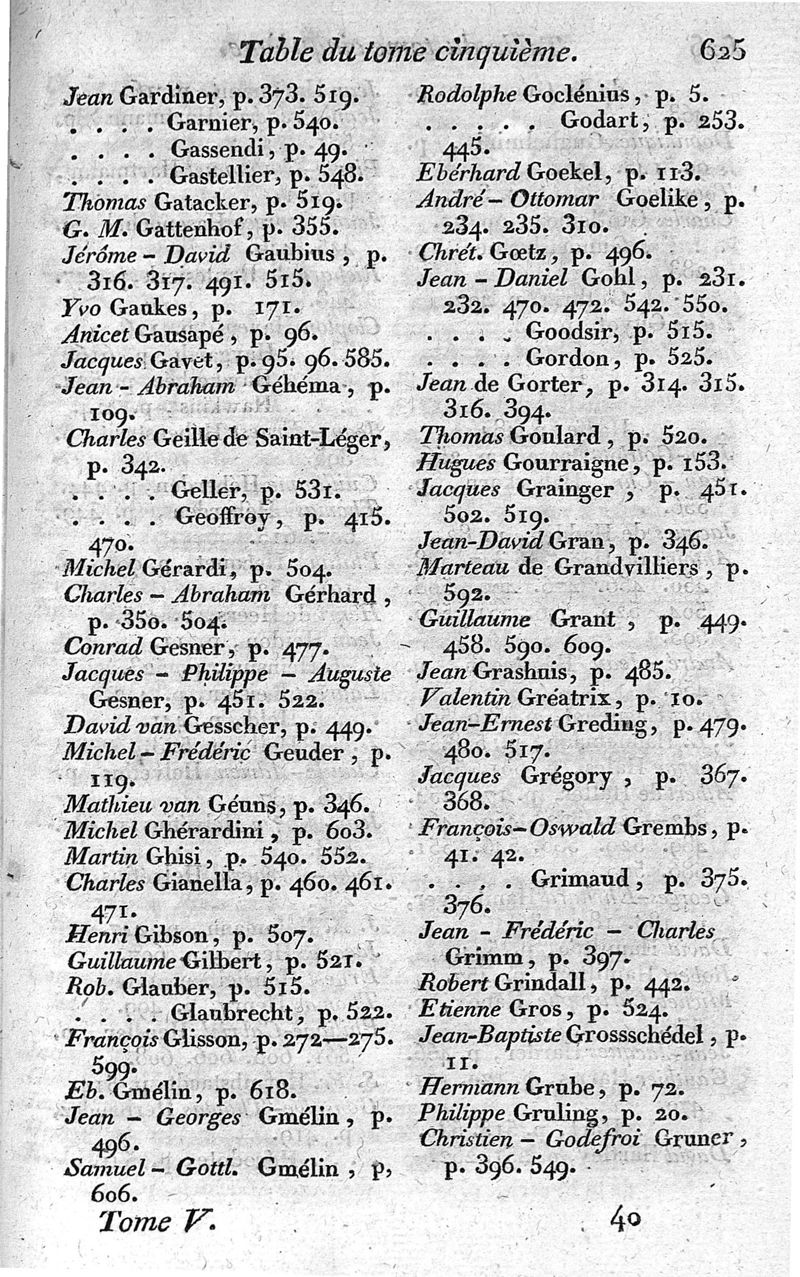 Table du tome cinquième. 625
Jean Gardiner, p. 373. 519.
. . . . Garnier, p. 540.
. . . . Gassendi, p. 49.
. . . . Gastellier, p. 548.
Thomas Gatacker, p. 519.
G. M. Gattenhof, p. 355.
Jérôme - David Gaubius, p.
316. 317. 491. 515.
Yvo Gaukes, p. 171.
Anicet Gausapé, p. 96.
Jacques Gavet, p. 95. 96. 585.
Jean - Abraham Géhéma, p.
109.
Charles Geille de Saint-Léger,
p. 342.
. . . . Geller, p. 531.
. . . . Geoffroy, p. 415.
470.
Michel Gérardi, p. 504.
Charles - Abraham Gérhard,
p. 350. 504.
Conrad Gesner, p. 477.
Jacques - Philippe - Auguste
Gesner, p. 451. 522.
David van Gesscher, p. 449.
Michel - Frédéric Geuder, p.
119.
Mathieu van Géuns, p. 346.
Michel Ghérardini, p. 603.
Martin Ghisi, p. 540. 552.
Charles Gianella, p. 460. 461.
471.
Henri Gibson, p. 507.
Guillaume Gilbert, p. 521.
Rob. Glauber, p. 515.
. . . . Glaubrecht, p. 522.
François Glisson, p. 272—275.
599.
Eb. Gmélin, p. 618.
Jean - Georges Gmélin, p.
496.
Samuel - Gottl. Gmélin, p,
606.
Rodolphe Goclénius, p. 5.
. . . . . Godart, p. 253.
445.
Ebérhard Goekel, p. 113.
André - Ottomar Goelike, p.
234. 235. 310.
Chrét. Gœtz, p. 496.
Jean - Daniel Gohl, p. 231.
232. 470. 472. 542. 550.
. . . . Goodsir, p. 515.
. . . . Gordon, p. 525.
Jean de Gorter, p. 314. 315.
316. 394.
Thomas Goulard, p. 520.
Hugues Gourraigne, p. 153.
Jacques Grainger, p. 451.
502. 519.
Jean-David Gran, p. 346.
Marteau de Grandvilliers, p.
592.
Guillaume Grant, p. 449.
458. 590. 609.
Jean Grashuis, p. 485.
Valentin Gréatrix, p. 10.
Jean-Ernest Greding, p. 479.
480. 517.
Jacques Grégory, p. 367.
368.
François-Oswald Grembs, p.
41. 42.
. . . . Grimaud, p. 375.
376.
Jean - Frédéric - Charles
Grimm, p. 397.
Robert Grindall, p. 442.
Etienne Gros, p. 524.
Jean-Baptiste Grossschédel, p.
11.
Hermann Grube, p. 72.
Philippe Gruling, p. 20.
Christien - Godefroi Gruner,
p. 396. 549.
Tome V. 40